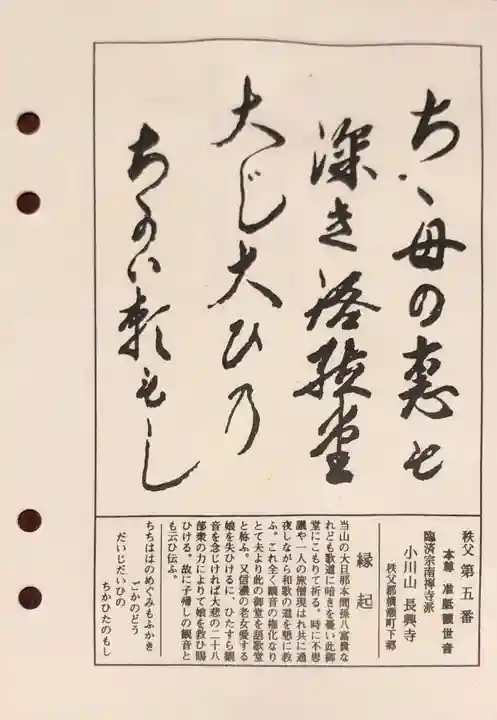 ちゝ母の恵も
深き語歌堂
大じ大ひの
ちかい頼もし
秩父 第五番
本尊 准胝観世音
臨済宗南禅寺派
小川山 長興寺
秩父郡横瀬町下郷
縁起
当山の大旦那本間孫八富貴な
れども歌道に暗きを憂い此御
堂にこもりて祈る。時に不思
議や一人の旅僧現はれ共に通
夜しながら和歌の道を懇に教
ふ。これ全く観音の権化なり
とて夫より此の御堂を語歌堂
と称ふ。又信濃の老女愛する
娘を失ひけるに、ひたすら観
音を念じければ大悲の二十八
部衆の力によりて娘を救ひ賜
ひける。故に子帰しの観音と
も云ひ伝ふ。
ちちははのめぐみもふかき
ごかのどう
だいじだいひの
ちかひたのもし